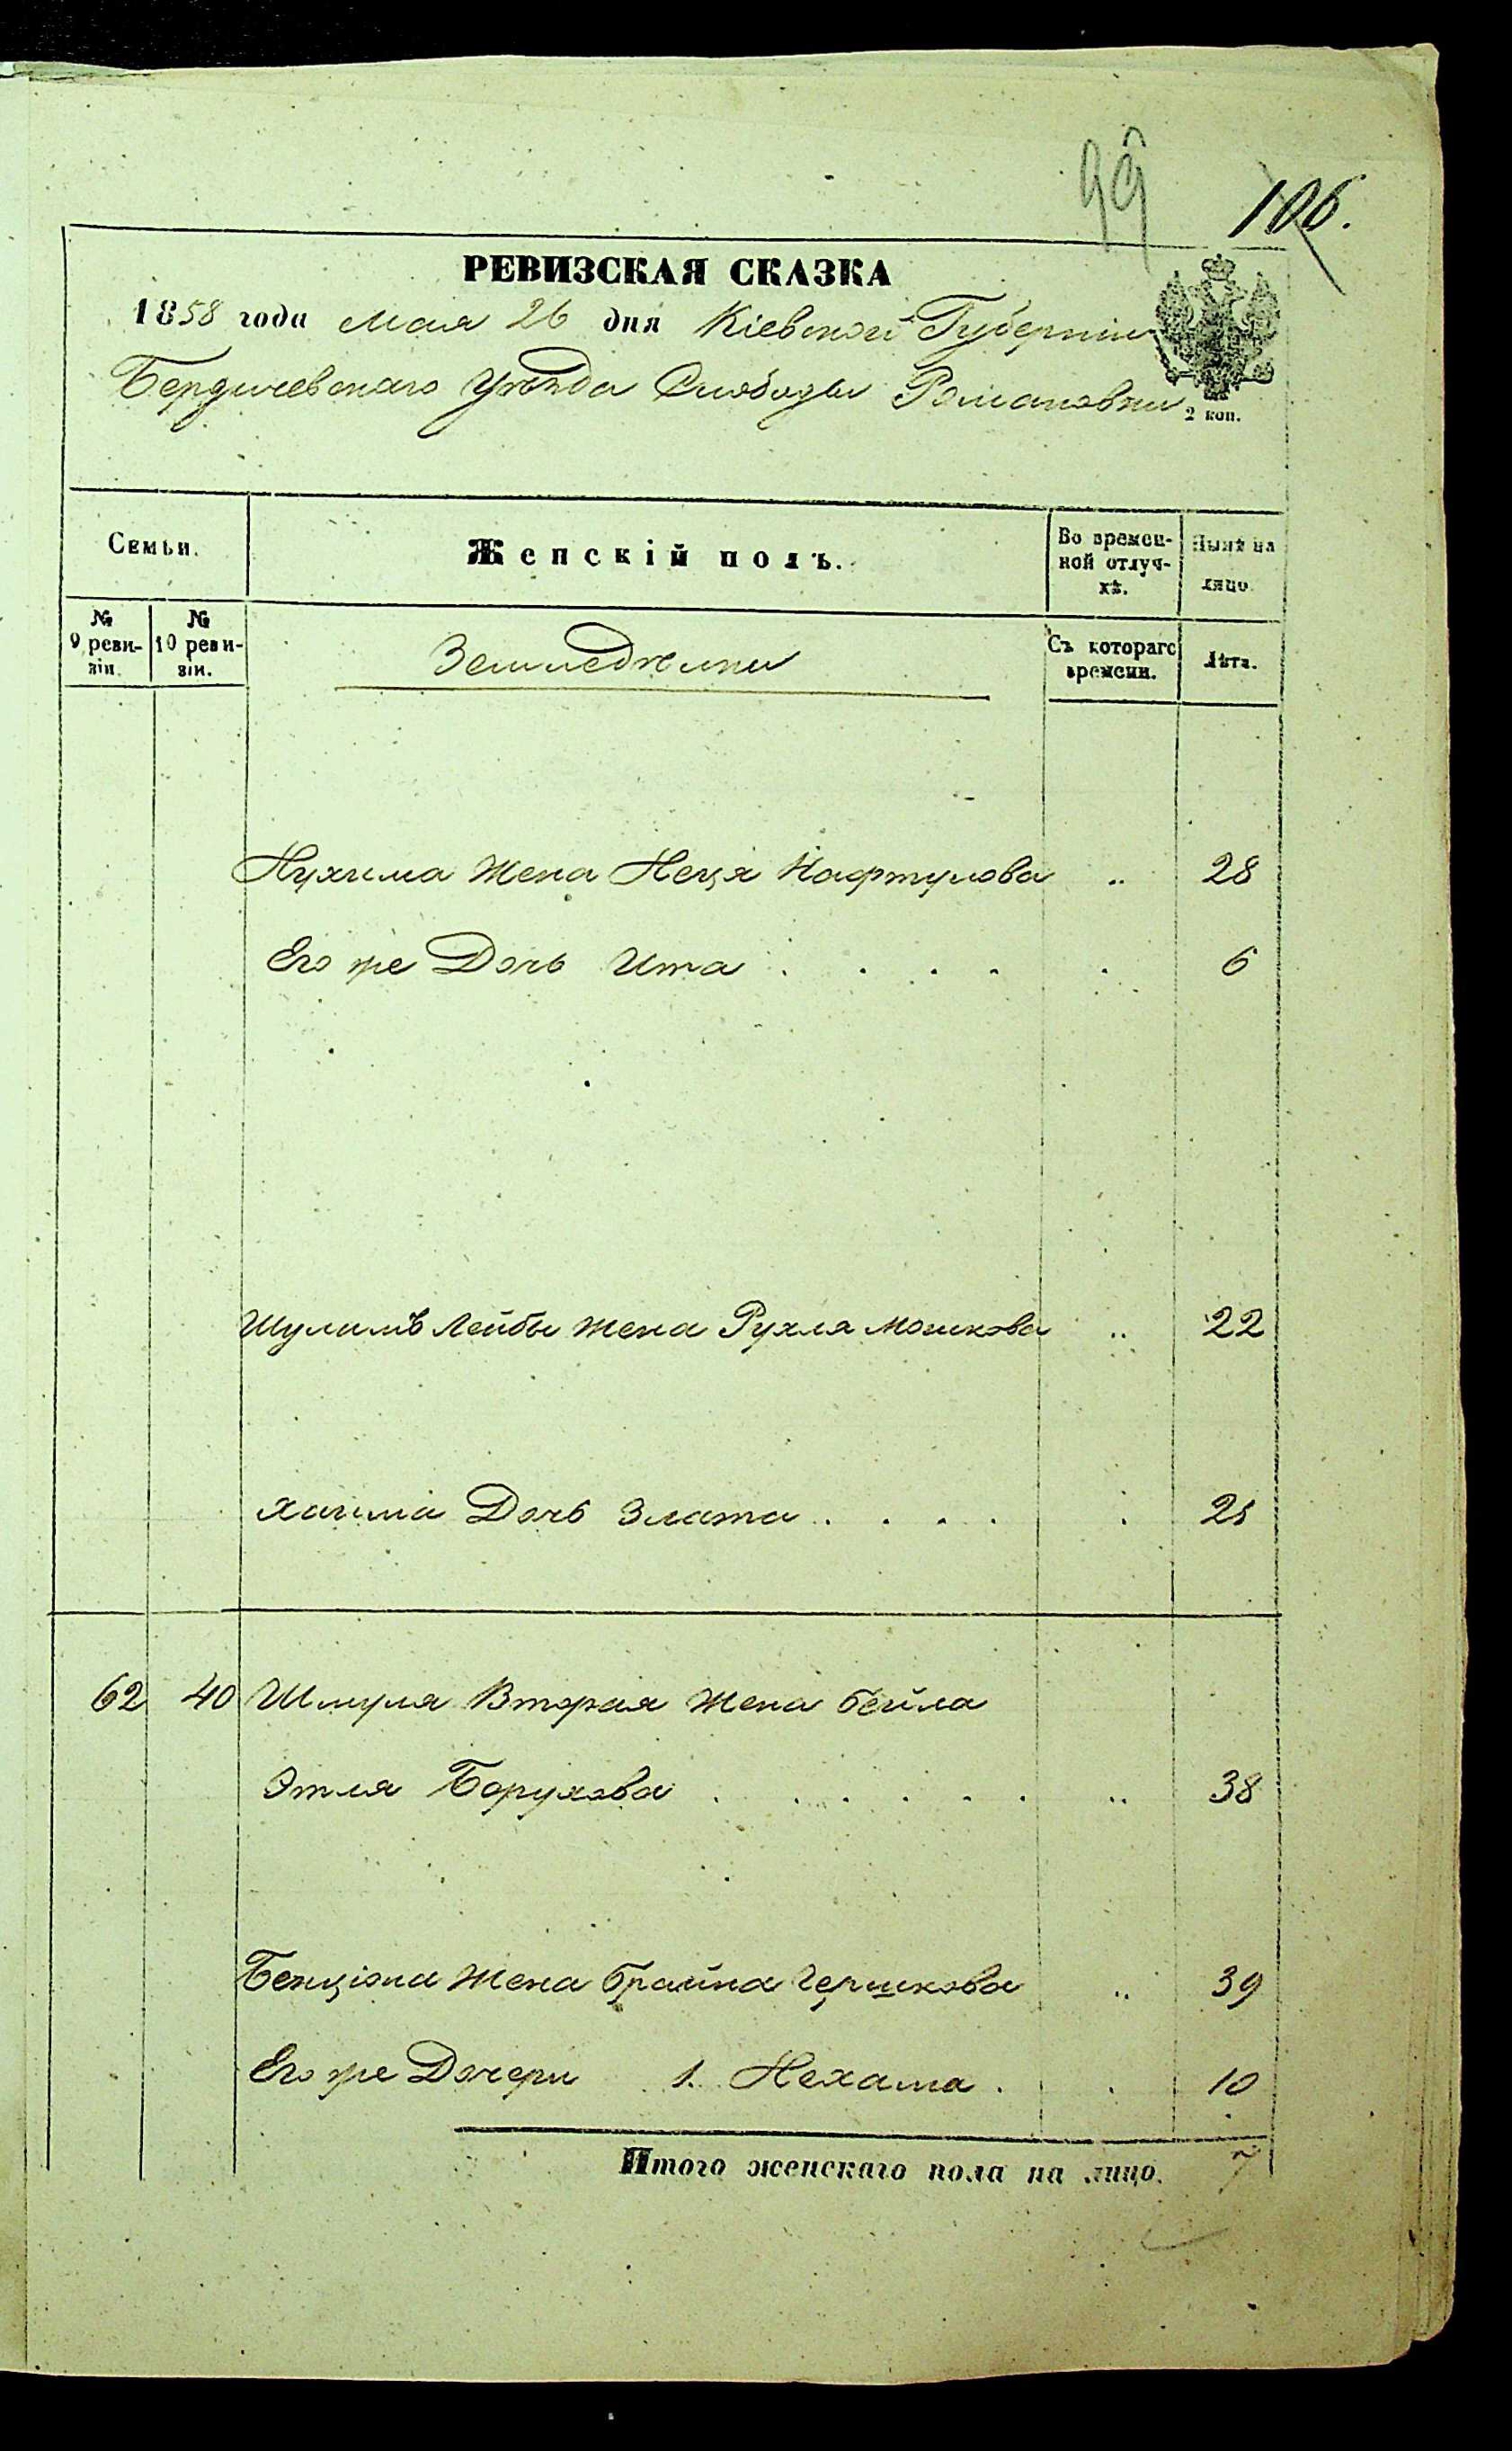 99
106.
РЕВИЗСКАЯ СКАЗКА
1858 года Мая 26 дня Кіевской Губерніи
Бердичевскаго Уѣзда Слободы Романовки
2 коп.
Семьи.
Женскій полъ.
Во времен-
ной отлуч-
кѣ.
Нынѣ на
лицо.
№
9 реви-
зіи.
№
10 реви-
зіи.
Съ котораго
времени.
Лѣта.
Нухима Жена Неся Нафтулова 28
Его же Дочь Ита 6
Шулимъ Лейбы жена Рухля Мошкова 22
Хаима Дочь Злата 25
62 40 Шмуля Вторая Жена Бейла
Этля Борухова 38
Бенціона Жена Брайна Гершкова 39
Его же Дочери 1. Нехама 10
Итого женскаго пола на лицо. 7